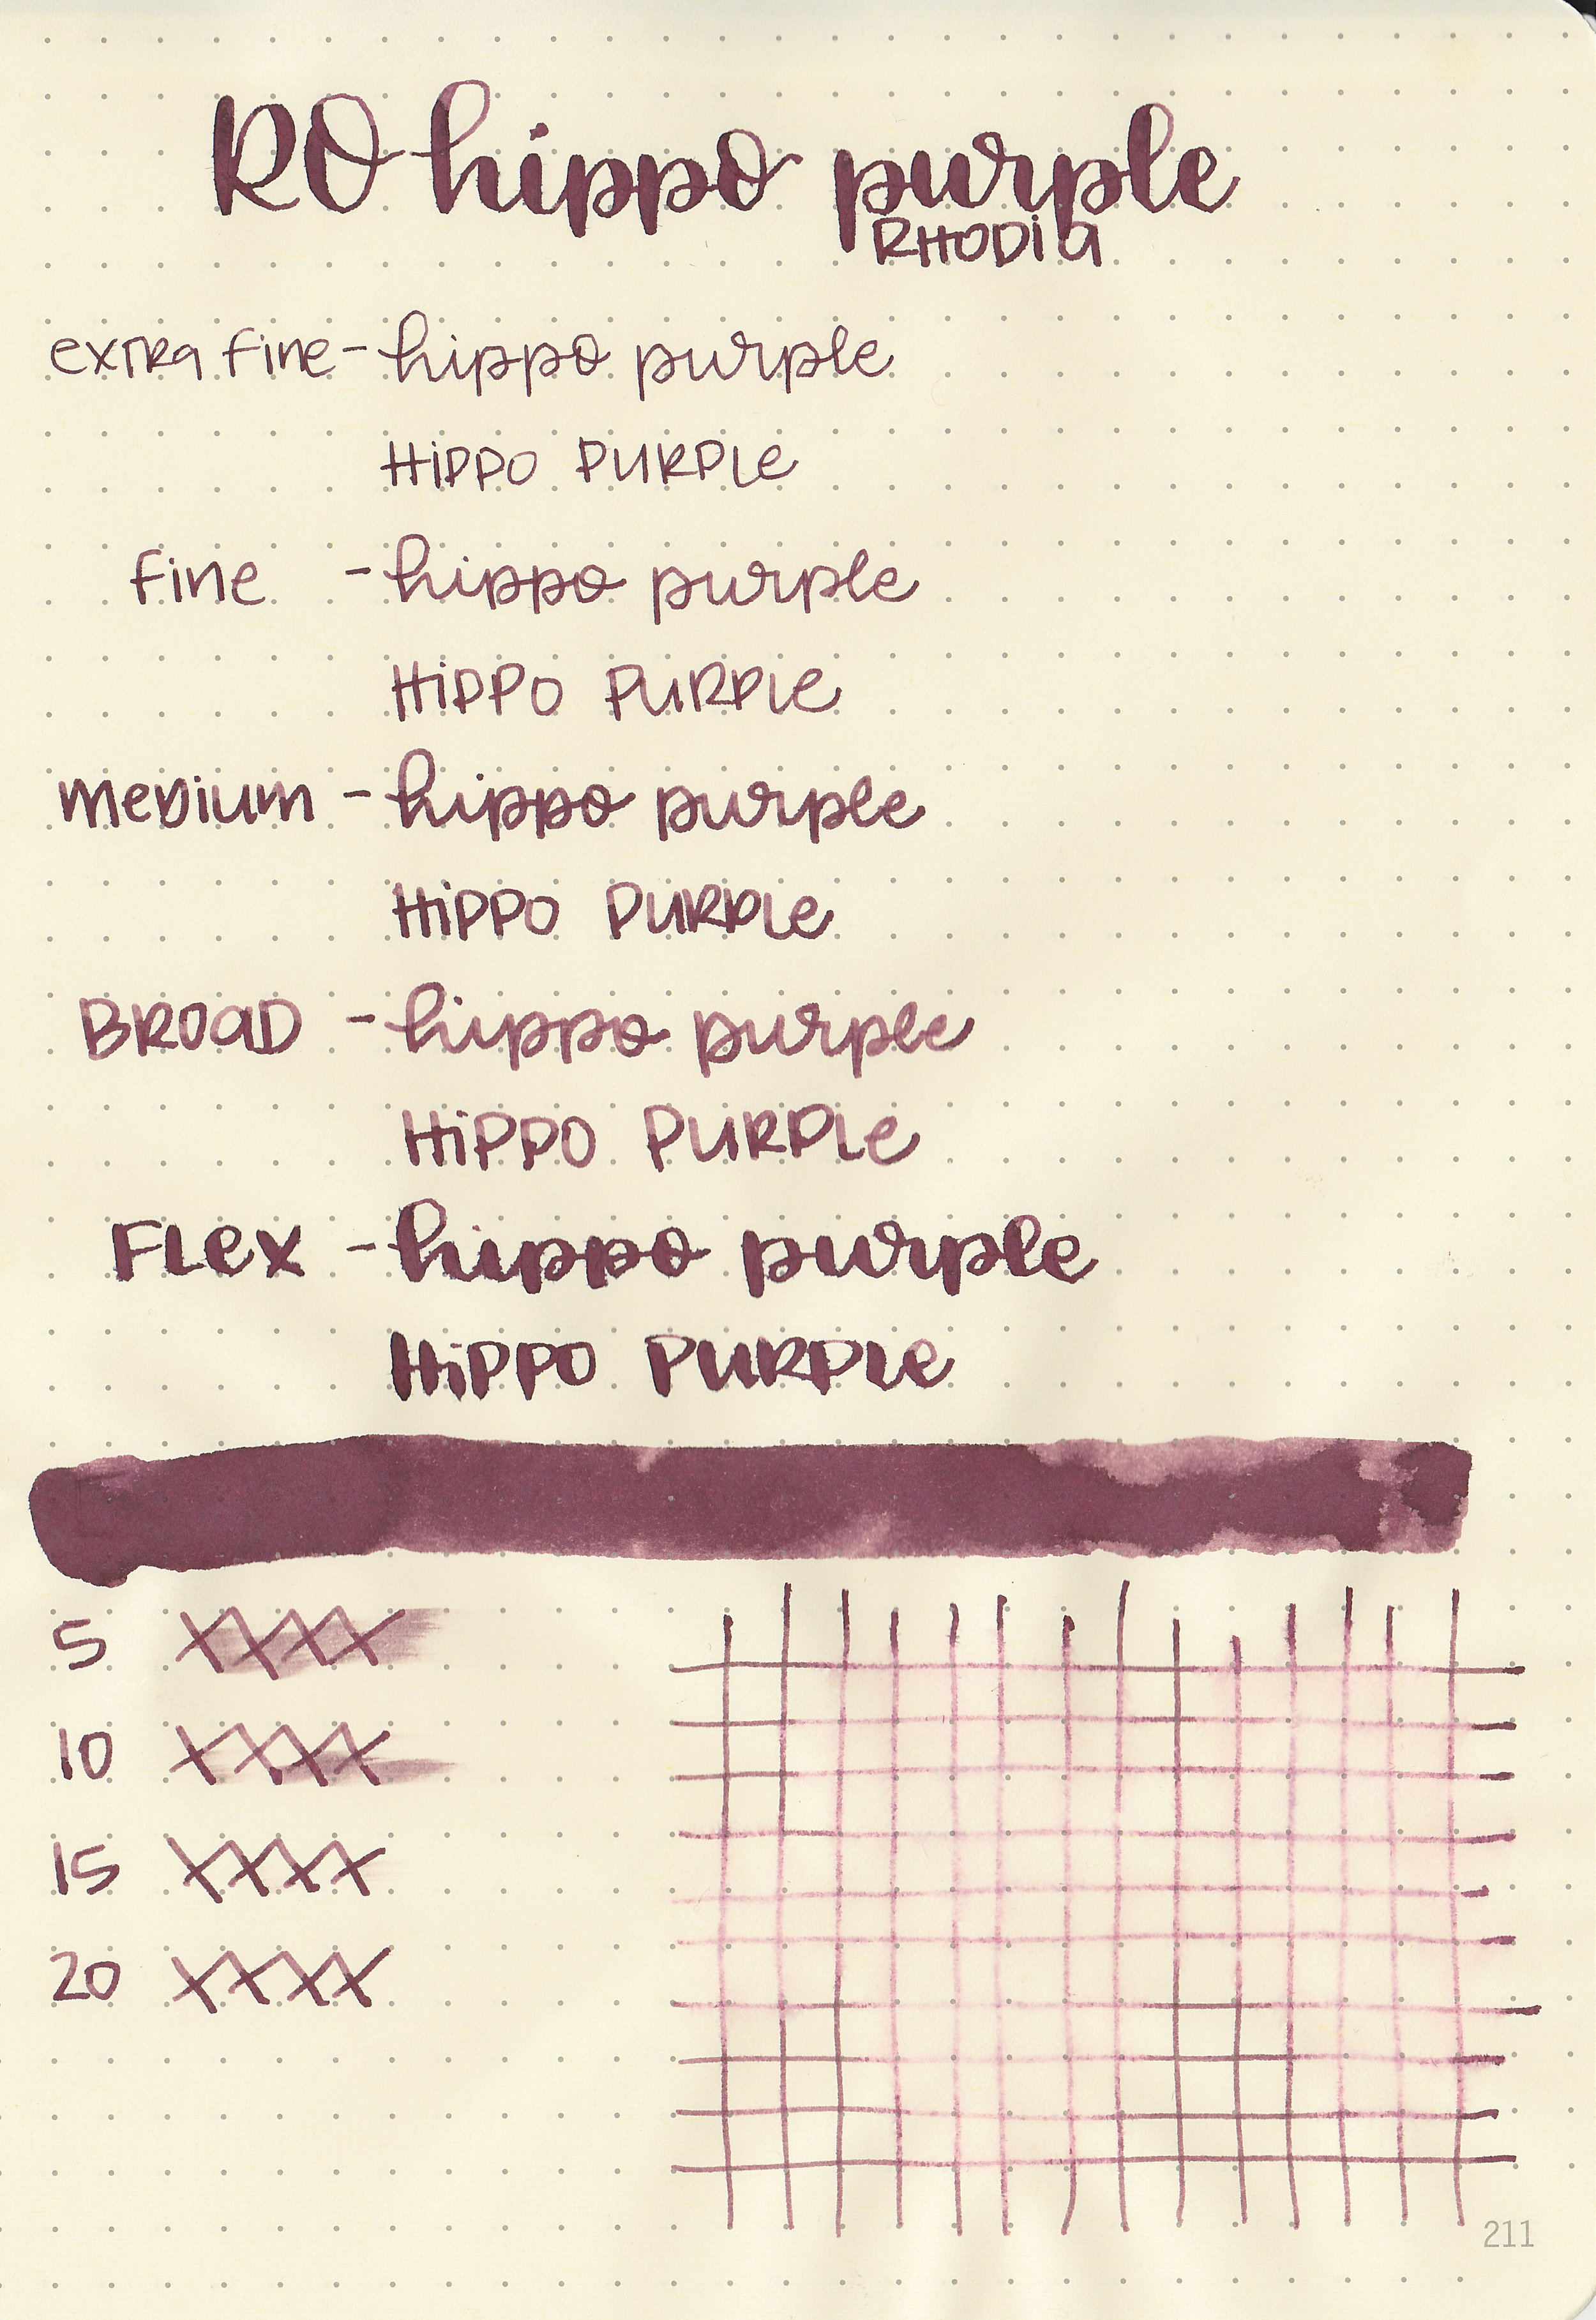 RO hippo purple
RHODIA
extra fine - hippo purple
HIPPO PURPLE
fine - hippo purple
HIPPO PURPLE
medium - hippo purple
HIPPO PURPLE
BROAD - hippo purple
HIPPO PURPLE
FLex - hippo purple
HIPPO PURPLE
5 XXXX
10 XXXX
15 XXXX
20 XXXX
211